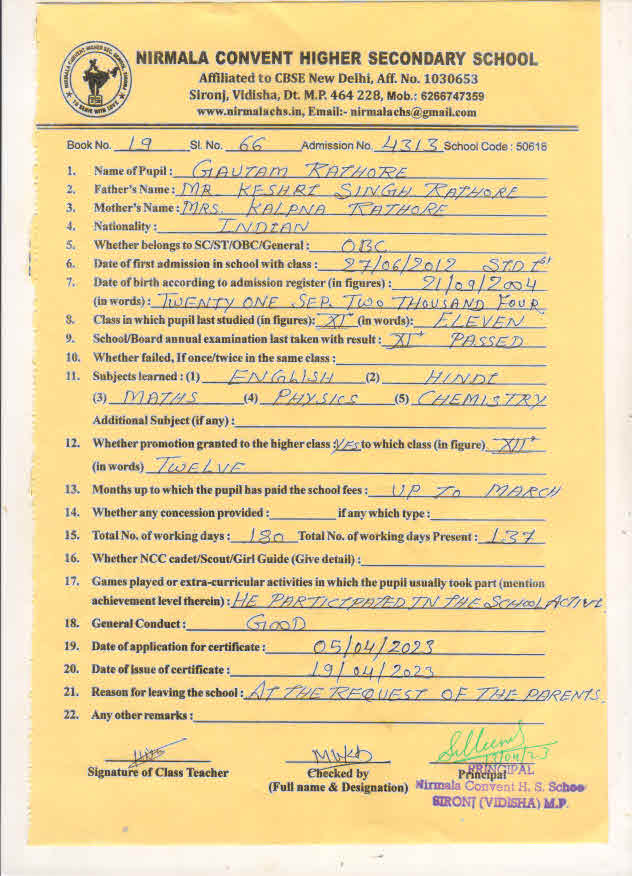 NIRMALA CONVENT HIGHER SECONDARY SCHOOL
Affiliated to CBSE New Delhi, Aff. No. 1030653
Sironj, Vidisha, Dt. M.P. 464 228, Mob.: 6266747359
www.nirmalachs.in, Email:- nirmalachs@gmail.com
NIRMALA CONVENT HIGHER SEC. SCHOOL, SIRONJ
TO SERVE WITH LOVE
Book No. 19 Sl. No. 66 Admission No. 4313 School Code : 50618
1. Name of Pupil : GAUTAM RATHORE
2. Father's Name : MR KESHRI SINGH RATHORE
3. Mother's Name : MRS. KALPNA RATHORE
4. Nationality : INDIAN
5. Whether belongs to SC/ST/OBC/General : OBC
6. Date of first admission in school with class : 27/06/2012 STD Ist
7. Date of birth according to admission register (in figures) : 21/09/2004
(in words) : TWENTY ONE SEP. TWO THOUSAND FOUR
8. Class in which pupil last studied (in figures): XIth (in words): ELEVEN
9. School/Board annual examination last taken with result : XIth PASSED
10. Whether failed, If once/twice in the same class :
11. Subjects learned : (1) ENGLISH (2) HINDI
(3) MATHS (4) PHYSICS (5) CHEMISTRY
Additional Subject (if any) :
12. Whether promotion granted to the higher class : YES to which class (in figure) XIIth
(in words) TWELVE
13. Months up to which the pupil has paid the school fees : UP TO MARCH
14. Whether any concession provided : if any which type :
15. Total No. of working days : 180 Total No. of working days Present : 137
16. Whether NCC cadet/Scout/Girl Guide (Give detail) :
17. Games played or extra-curricular activities in which the pupil usually took part (mention
achievement level therein) : HE PARTICIPATED IN THE SCHOOL ACTIVI
18. General Conduct : GOOD
19. Date of application for certificate : 05/04/2023
20. Date of issue of certificate : 19/04/2023
21. Reason for leaving the school : AT THE REQUEST OF THE PARENTS.
22. Any other remarks :
19/04/23
Signature of Class Teacher Checked by Principal
(Full name & Designation)
PRINCIPAL
Nirmala Convent H. S. Schoo
SIRONJ (VIDISHA) M.P.